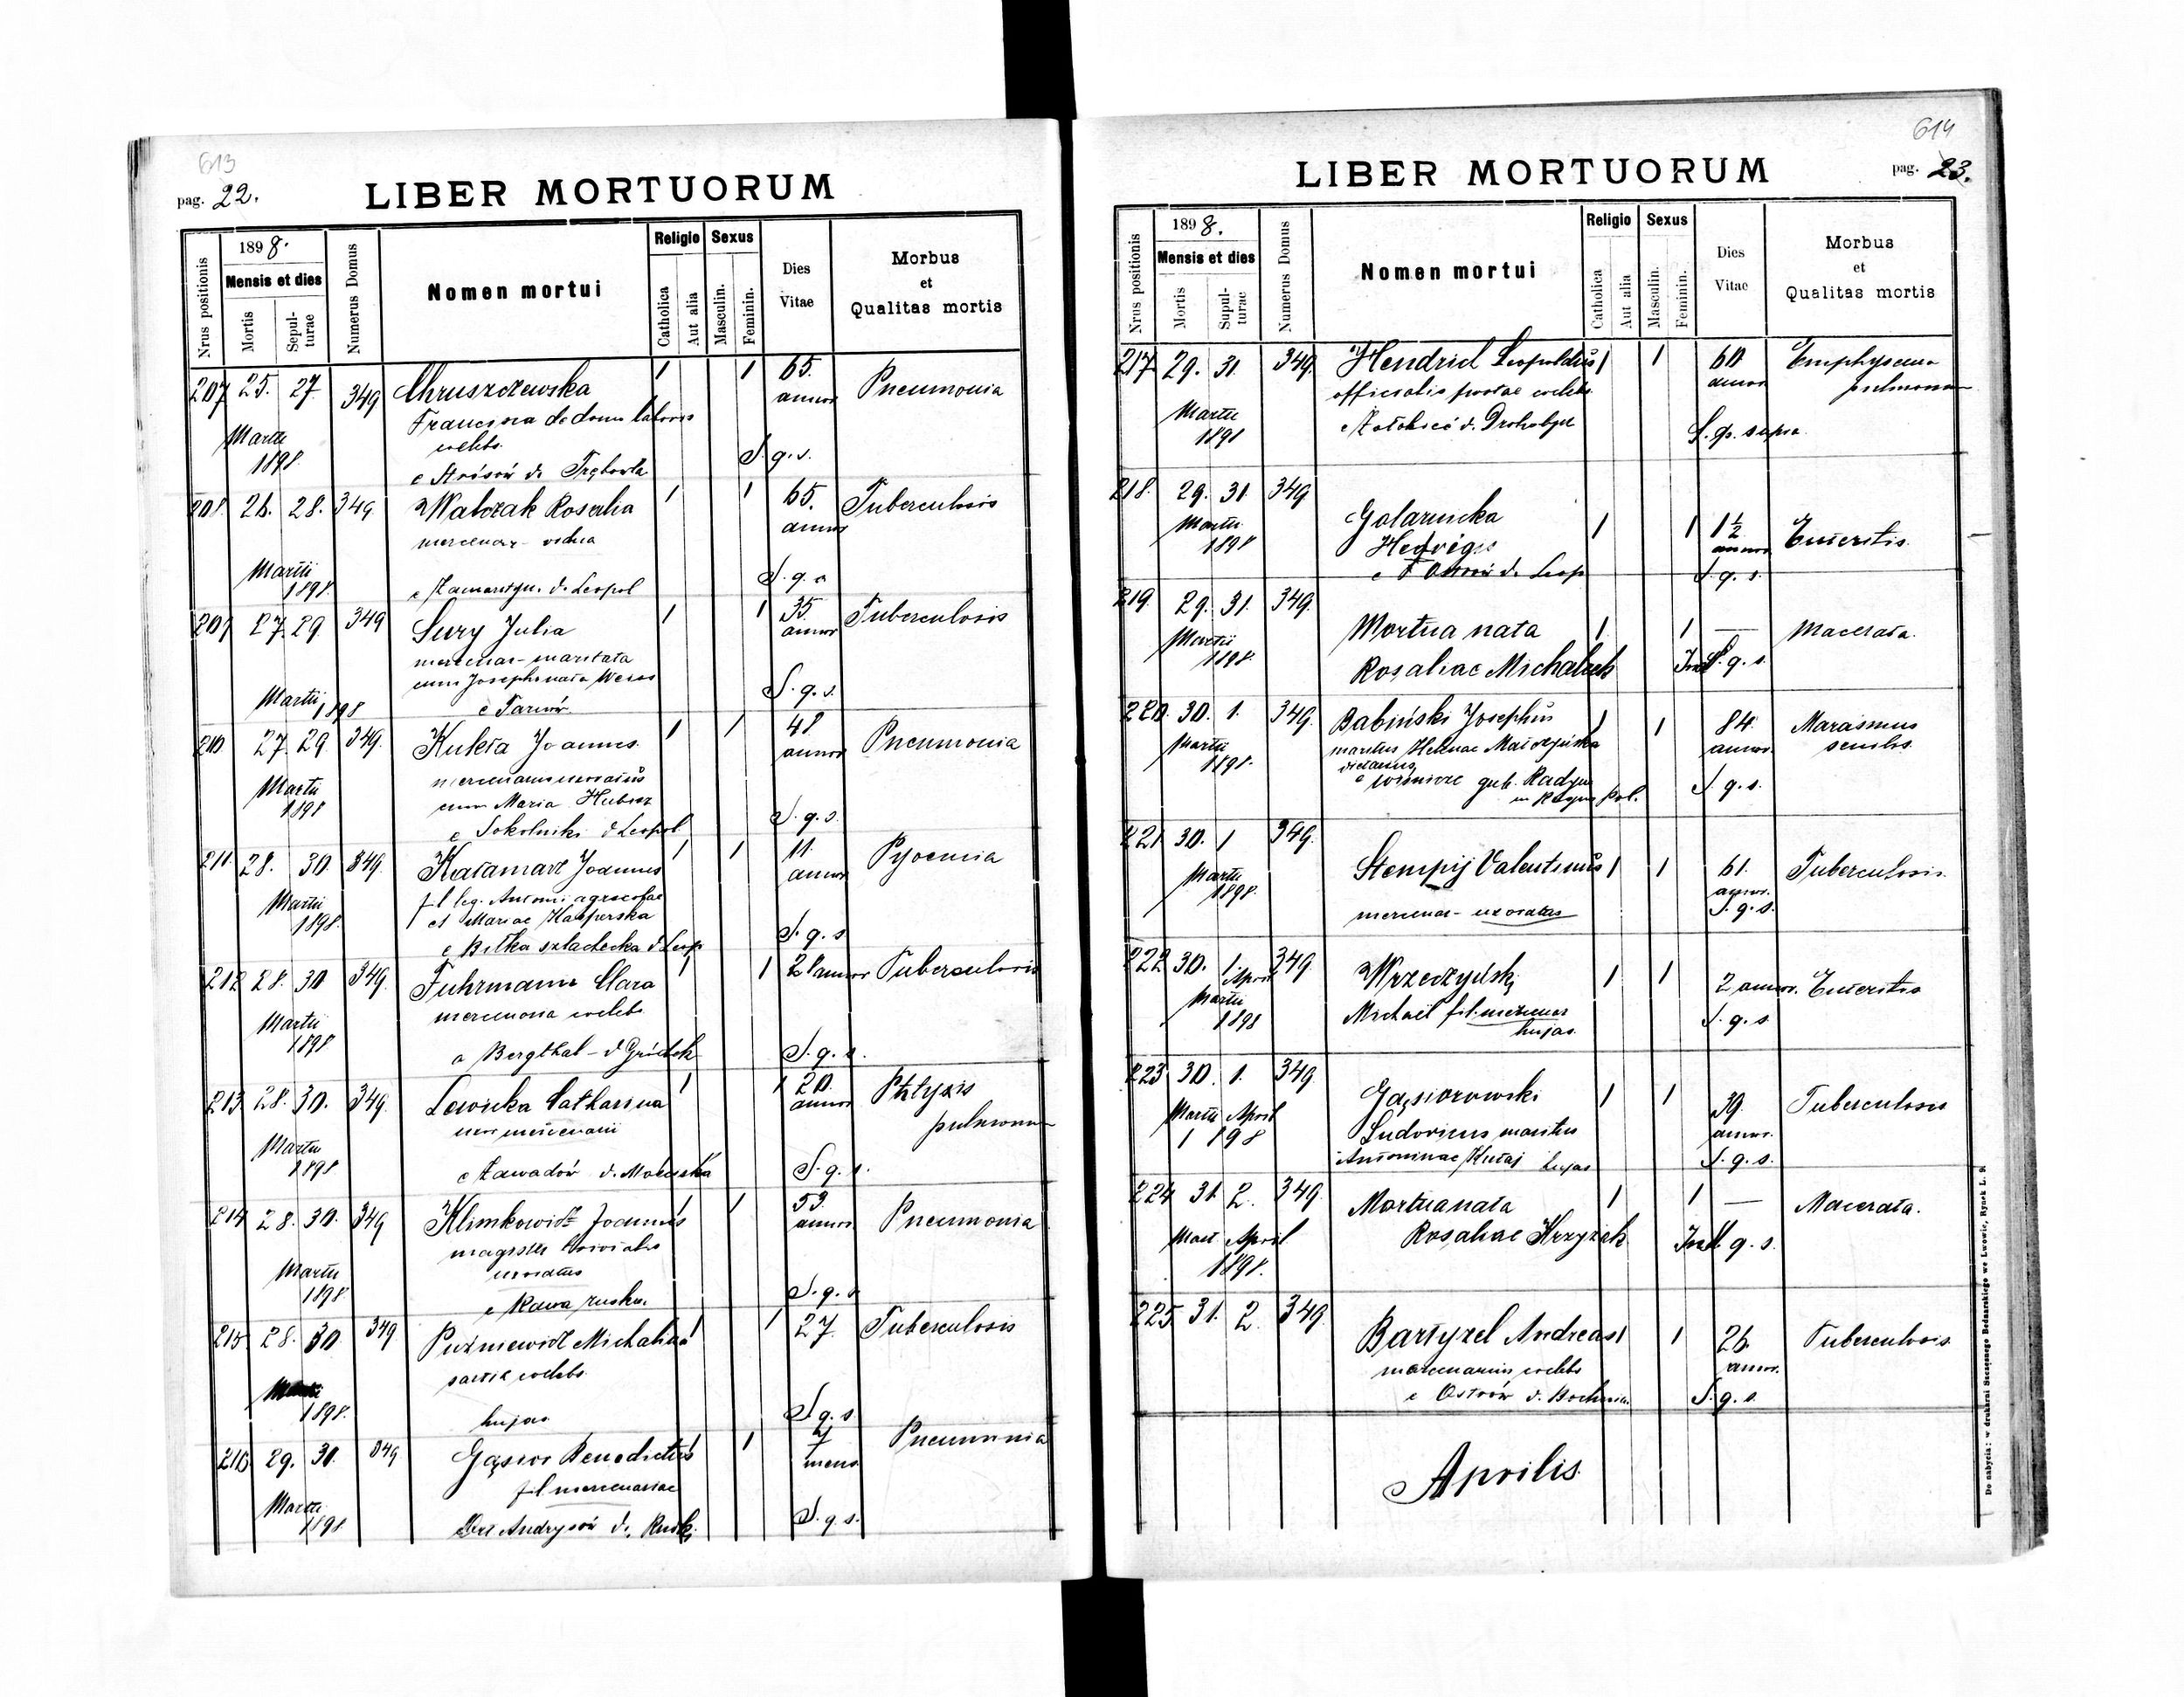 613
pag. 22.
LIBER MORTUORUM
Nrus positionis
1898.
Mensis et dies
Mortis
Sepulturae
Numerus Domus
Nomen mortui
Religio
Catholica
Aut alia
Sexus
Masculin.
Feminin.
Dies Vitae
Morbus et Qualitas mortis
207 25. 27. 349 Chruszczewska 1 1 65. Pneumonia
annor
Francisca de domo
Martii coelebs
1898. S. q. s.
e Strósów d. Trębowla
208. 26. 28. 349 Walczak Rosalia 1 1 65. Tuberculosis
annor
mercenar- vidua
Martii S. q. s
1898 e Zamarstyn. d. Leopol
209 27. 29 349 Sury Julia 1 1 35. Tuberculosis
annor
mercenar- maritata
cum Josepho
Martii 1898 e Tarnów. S. q. s.
210 27. 29 349. Kukła Joannes 1 1 48 Pneumonia
annor
mercenarius uxoratus
Martii cum Maria Hubisz
1898
e Sokolniki d Leopol S. q. s.
211 28. 30. 349. Joannes 1 1 11. Pyoemia
annor
fil leg. Antoni agricolae
Martii et Mariae Kasperska
1898. S. q. s
e Biłka szlachecka d Leop
212 28. 30 349. Fuhrmann Clara 1 1 21 annor Tuberculosis
mercenaria coelebs
Martii
1898
a Bergthal - d Gródek S. q. s.
213 28. 30. 349. Lewicka Catharina 1 1 20. Phtyzis
annor
uxor mercenarii pulmonum
Martii
1898
e Zawadów d. Mościska S. q. s.
214 28. 30. 349 Klimkowicz Joannes 1 1 53. Pneumonia
annor
magister trivialis
Martii uxoratus
1898 S. q. s
e Rawa ruska.
215 28. 30 349 Puzniewicz Michalina 1 1 27. Tuberculosis
coelebs
Martii
1898. hujas S. q. s.
216 29. 30. 349 Gąsior Benedictus 1 1 Pneumonia
mens
fil mercenariae
Martii
1898 Andrysów d. Rudki. S. q. s.
614
pag. 23.
LIBER MORTUORUM
Nrus positionis
1898.
Mensis et dies
Mortis
Sepulturae
Numerus Domus
Nomen mortui
Religio
Catholica
Aut alia
Sexus
Masculin.
Feminin.
Dies Vitae
Morbus et Qualitas mortis
217. 29. 31. 349. Hendrich Leopoldus 1 1 60 Emphysema
annor pulmonum
officialis postae coelebs
Martii d. Drohobycz S. q. supra
1898
218. 29. 31. 349
Martii Golarnicka 1 1 1½ Enteritis.
1898 Hedvigis annor
d. Leop S. q. s.
219. 29. 31. 349.
Martii Mortua nata 1 1 — Macerata.
1898. Rosaliae Michaluk Inf S. q. s.
220. 30. 1. 349. Babiński Josephus 1 1 84. Marasmus
Martii maritus Helenae annor. senilis.
1898.
e Wisnicze gub. Radym S. q. s.
in Regno Pol.
221 30. 1 349.
Martii Stempij Valentinus 1 1 61. Tuberculosis.
1898. annor.
mercenar- uxoratus S. q. s.
222 30. 1. 349. Wrzeczyński 1 1 2 annor. Enteritis
April
Martii Michael fil. mercenar S. q. s
1898 hujas.
223 30. 1. 349 Gąsiorowski 1 1 39. Tuberculosis
Martii April Ludovicus maritus annor.
1898 Antoninae hujas S. q. s.
224 31. 2. 349. Mortua nata 1 1 — Macerata.
Mart April Rosaliae Krzyzak Inf S. q. s.
1898.
225 31. 2. 349. Bartyzel Andreas 1 1 26. Tuberculosis
mercenarius coelebs annor.
e Ostrów d. Bochnia. S. q. s.
Aprilis.
Do nabycia: w drukarni Szczęsnego Bednarskiego we Lwowie, Rynek L. 9.